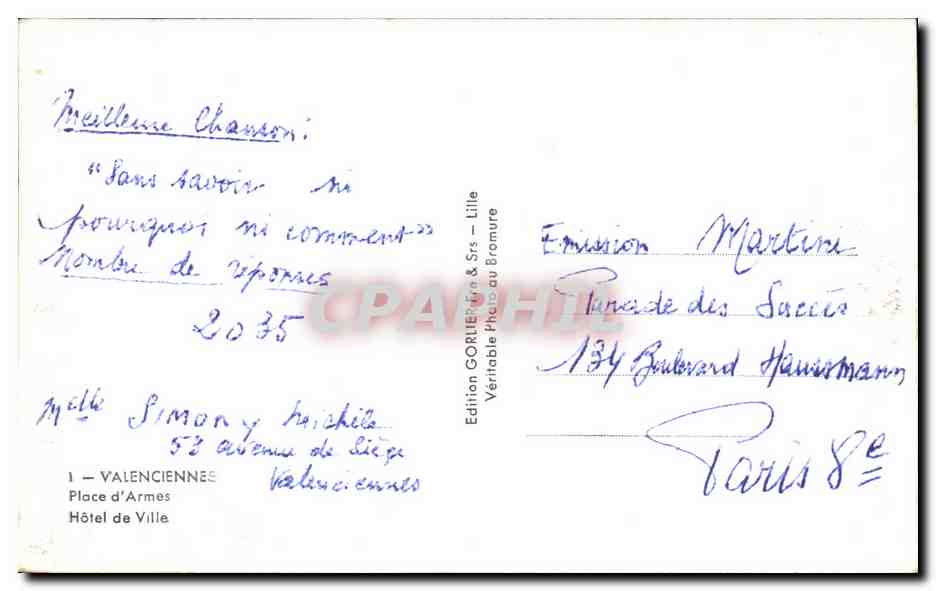 Meilleure Chanson:
"Sans savoir ni
pourquoi ni comment"
Nombre de réponses
2035
Melle SIMON y Michèle
53 avenue de Liège
Valenciennes
1 — VALENCIENNES
Place d'Armes
Hôtel de Ville
Edition GORLIER & Srs — Lille
Véritable Photo au Bromure
CPAPHIL
Emission Martini
Parade des Succès
134 Boulevard Haussmann
Paris 8e